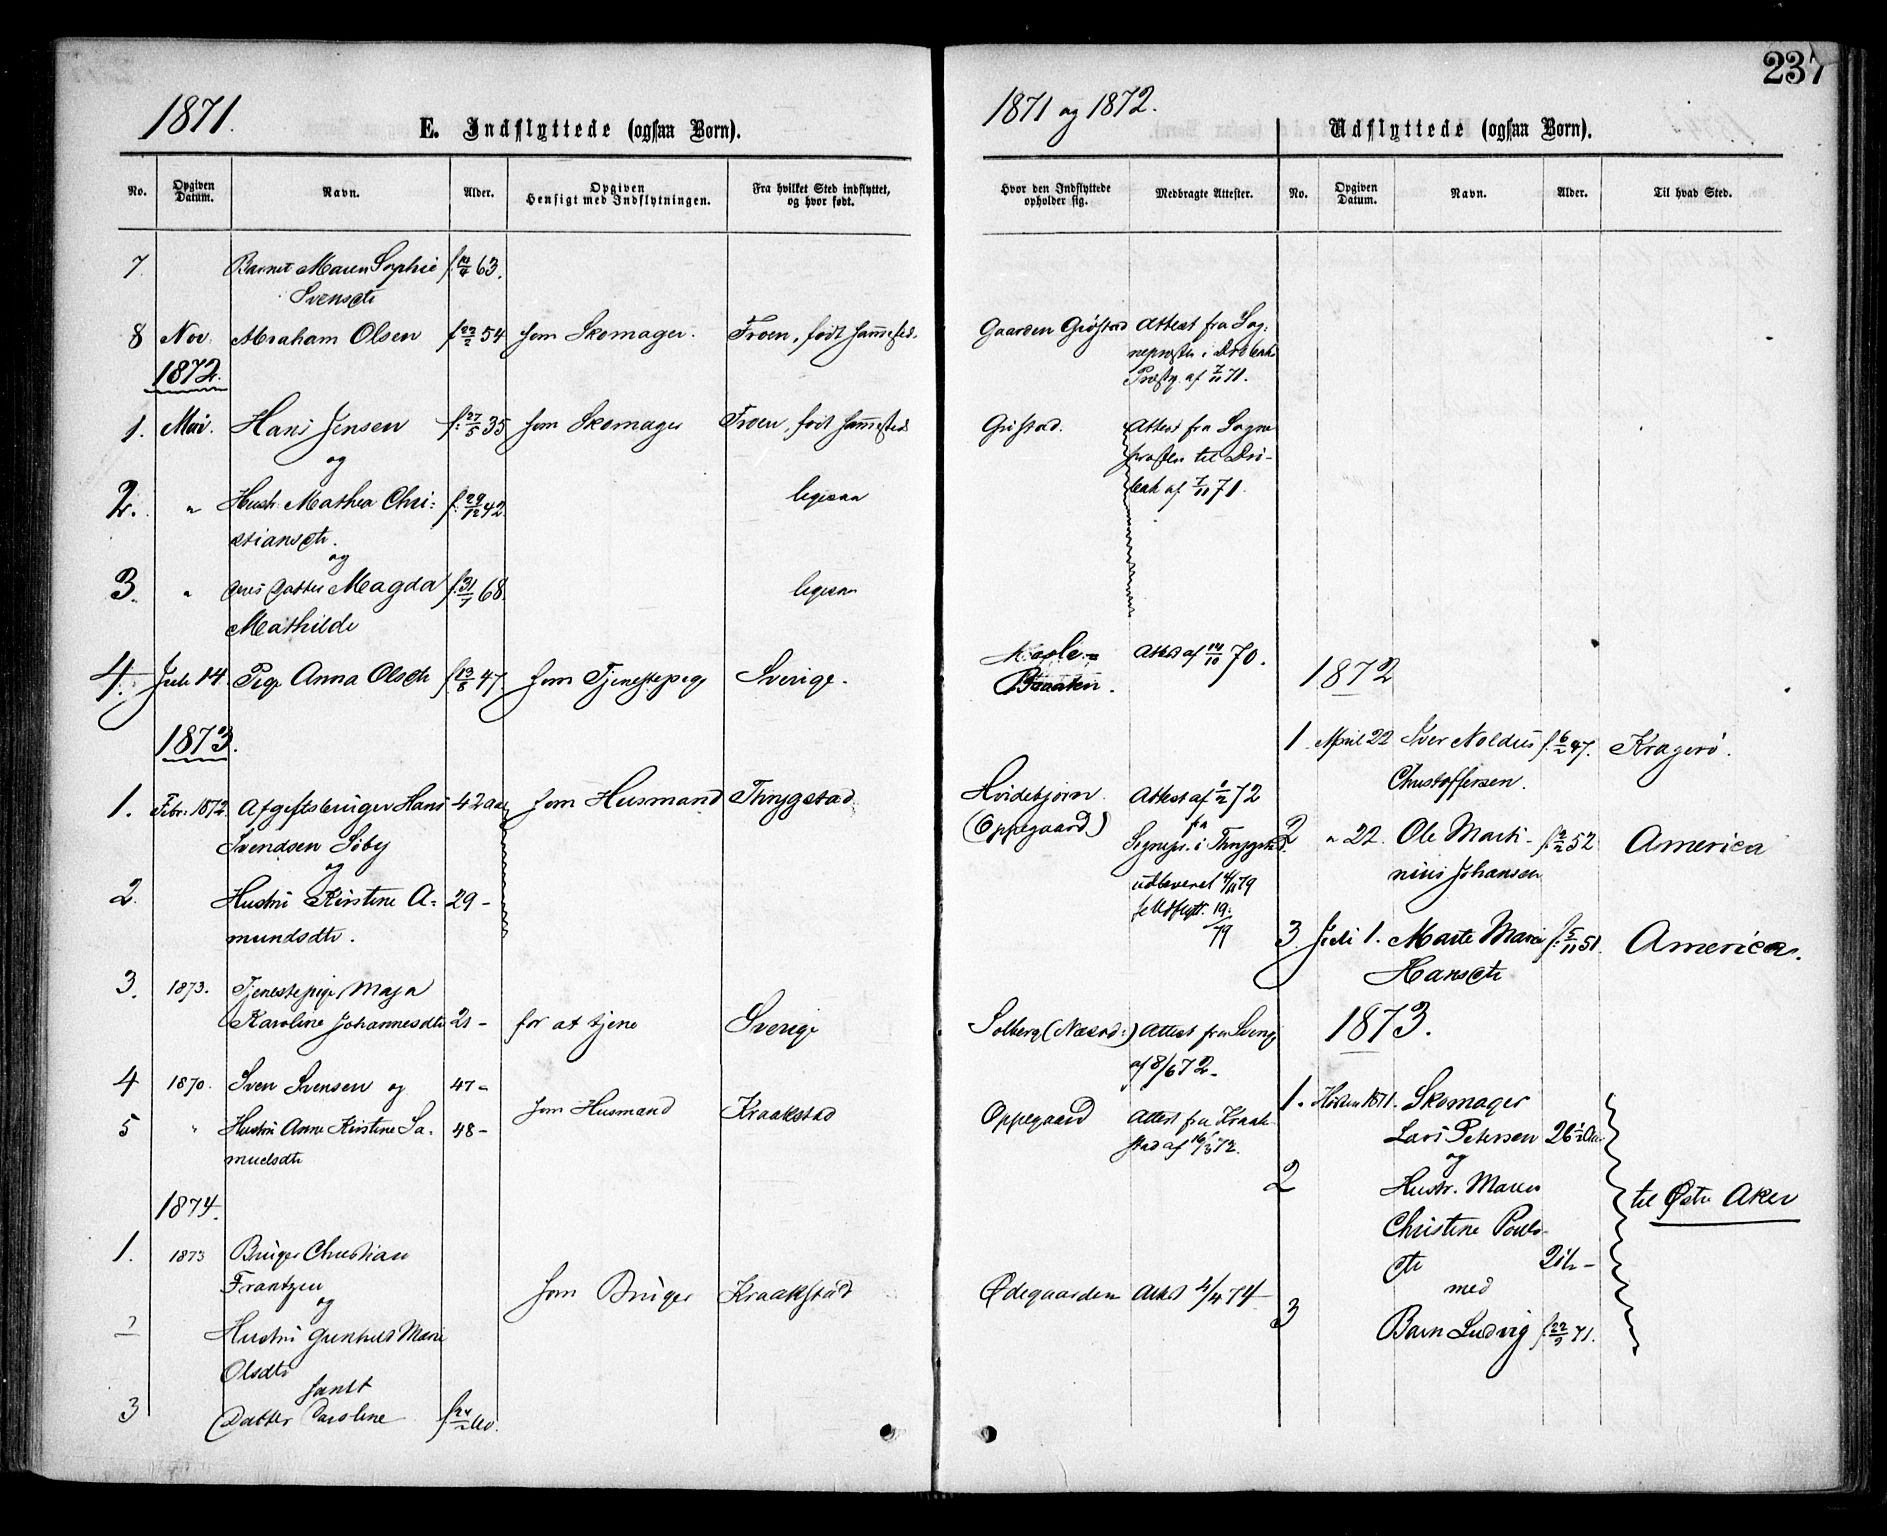 237
1871.
E. Indflyttede (ogsaa Børn).
1871 og 1872.
Udflyttede (ogsaa Børn).
No.
Opgiven Datum.
Navn.
Alder.
Opgiven Hensigt med Indflytningen.
Fra hvilket Sted indflyttet, og hvor født.
Hvor den Indflyttede opholder sig.
Medbragte Attester.
No.
Opgiven Datum.
Navn.
Alder.
Til hvad Sted.
7. Barnet Maren Sophie f. 63.
Svensdtr
8 Nov. Abraham Olsen f. 22/2 54 som Skomager. Froen, født sammested.
Gaarden Attest fra Sog-
nepræsten i Drøbak
Præstg. af 7/11 71.
1872.
1. Mai. Hans Jensen f. 27/5 35 som Skomager Froen, født sammested
Attest fra Sogne
præsten til Drø-
bak af 7/11 71.
og
2. " Hustr. Mathea Chri- f. 29/12 42 ligesaa
stiansdtr.
og
3. " Datter Magda f. 31/7 68. ligesaa
Mathilde
4. Juli 14. Pige Anna Olsdtr f. 13/8 47. som Tjenestepige Sverige.
Braaten. Attest af 14/10 70.
1873.
1. Febr: 1872. Afgiftsbruger Hans 42 aar som Husmand Thrygstad
Svendsen Siby
og
Hvidebjørn Attest af 1/2 72
(Oppegaard) fra
Sognepr. i Thrygstad.
udleveret 4/11 79
se Udflytt. 19:
79
2. Hustru Kirstine A- 29 -
mundsdtr.
3. 1873. Tjenestepige Maja
Karoline Johannesdtr 21 - for at tjene Sverige
Solberg (Næsod:) Attest fra Sverig
af 8/6 72 -
4 1870. Sven Svensen og 47 -
som Husmand Kraakstad
Oppegaard Attest fra Kraak-
stad af 16/3 72.
5 " Hustru Anne Kirstine Sa- 48 -
muelsdtr
1874.
1. 1873 Bruger Christian
Frantzen
og
som Bruger Kraakstad
Ødegaarden Attest 4/4 74
2 Hustru Marie
Olsdtr
samt
3 Datter Caroline
1872
1. April 22 Iver Noldus f. 6/2 47. Kragerø.
Christoffersen.
2. " 22. Ole Marti- f. 2/2 52 America
nius Johansen
3. Juli 1. Marte Marie f. 5/11 51. America.
Hansdtr
1873.
1. Høsten 1871. Skomager
Lars Petersen 26 1/2 Aar
og
2 Hustr. Maren
Christine Pouls-
dtr 21 1/2 -
til Østre Aker
med
3 Barn Ludvig f. 22/9 71.